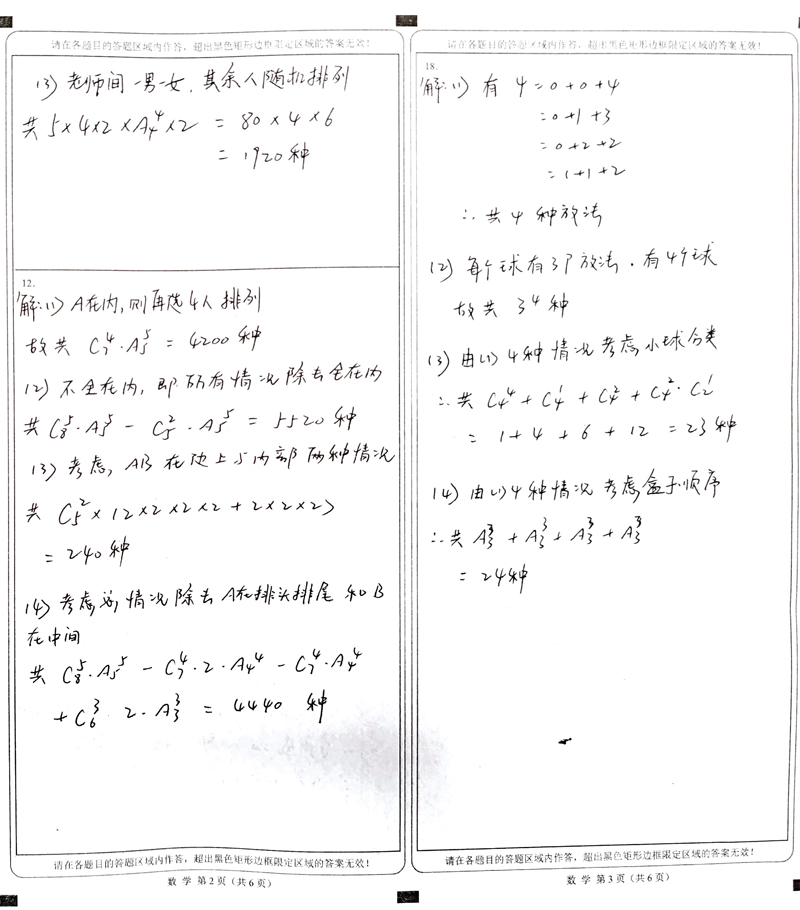 请在各题目的答题区域内作答，超出黑色矩形边框限定区域的答案无效！
(3) 老师间一男一女，其余人随机排列
共 5×4×2×A₄⁴×2 = 80×4×6
= 1920 种
12.
解:(1) A在内，则再选4人排列
故共 C₇⁴·A₅⁵ = 4200 种
(2) 不全在内，即所有情况除去全在内
共 C₈⁵·A₅⁵ - C₅²·A₅⁵ = 5520种
(3) 考虑，AB在边上与内部两种情况
共 C₅²×12×2×2×2+2×2×2)
= 240种
(4) 考虑 情况除去A在排头排尾和B
在中间
共 C₈⁵·A₅⁵ - C₇⁴·2·A₄⁴ - C₇⁴·A₄⁴
+ C₆³ 2·A₃³ = 4440 种
请在各题目的答题区域内作答，超出黑色矩形边框限定区域的答案无效！
数学 第2页（共6页）
请在各题目的答题区域内作答，超出黑色矩形边框限定区域的答案无效！
18.
解:(1) 有 4=0+0+4
=0+1+3
=0+2+2
=1+1+2
∴共4种放法
(2) 每个球有3种放法，有4个球
故共 3⁴ 种
(3) 由(1)4种情况考虑小球分类
∴共 C₄⁴ + C₄¹ + C₄² + C₄²·C₂¹
= 1+4+6+12 = 23种
(4) 由(1)4种情况考虑盒子顺序
∴共 A₃³ + A₃³ + A₃³ + A₃³
= 24种
请在各题目的答题区域内作答，超出黑色矩形边框限定区域的答案无效！
数学 第3页（共6页）